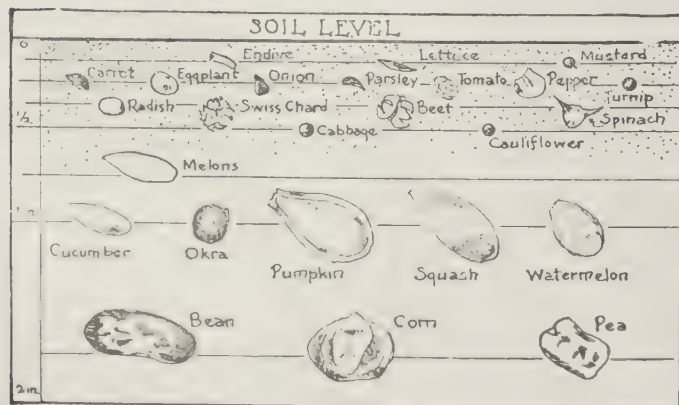 SOIL LEVEL
0
Endive Lettuce Mustard
Carrot Eggplant Onion Parsley Tomato Pepper
Turnip
Radish Swiss Chard Beet
Spinach
1/2
Cabbage Cauliflower
Melons
Cucumber Okra Pumpkin Squash Watermelon
Bean Corn Pea
2 in.